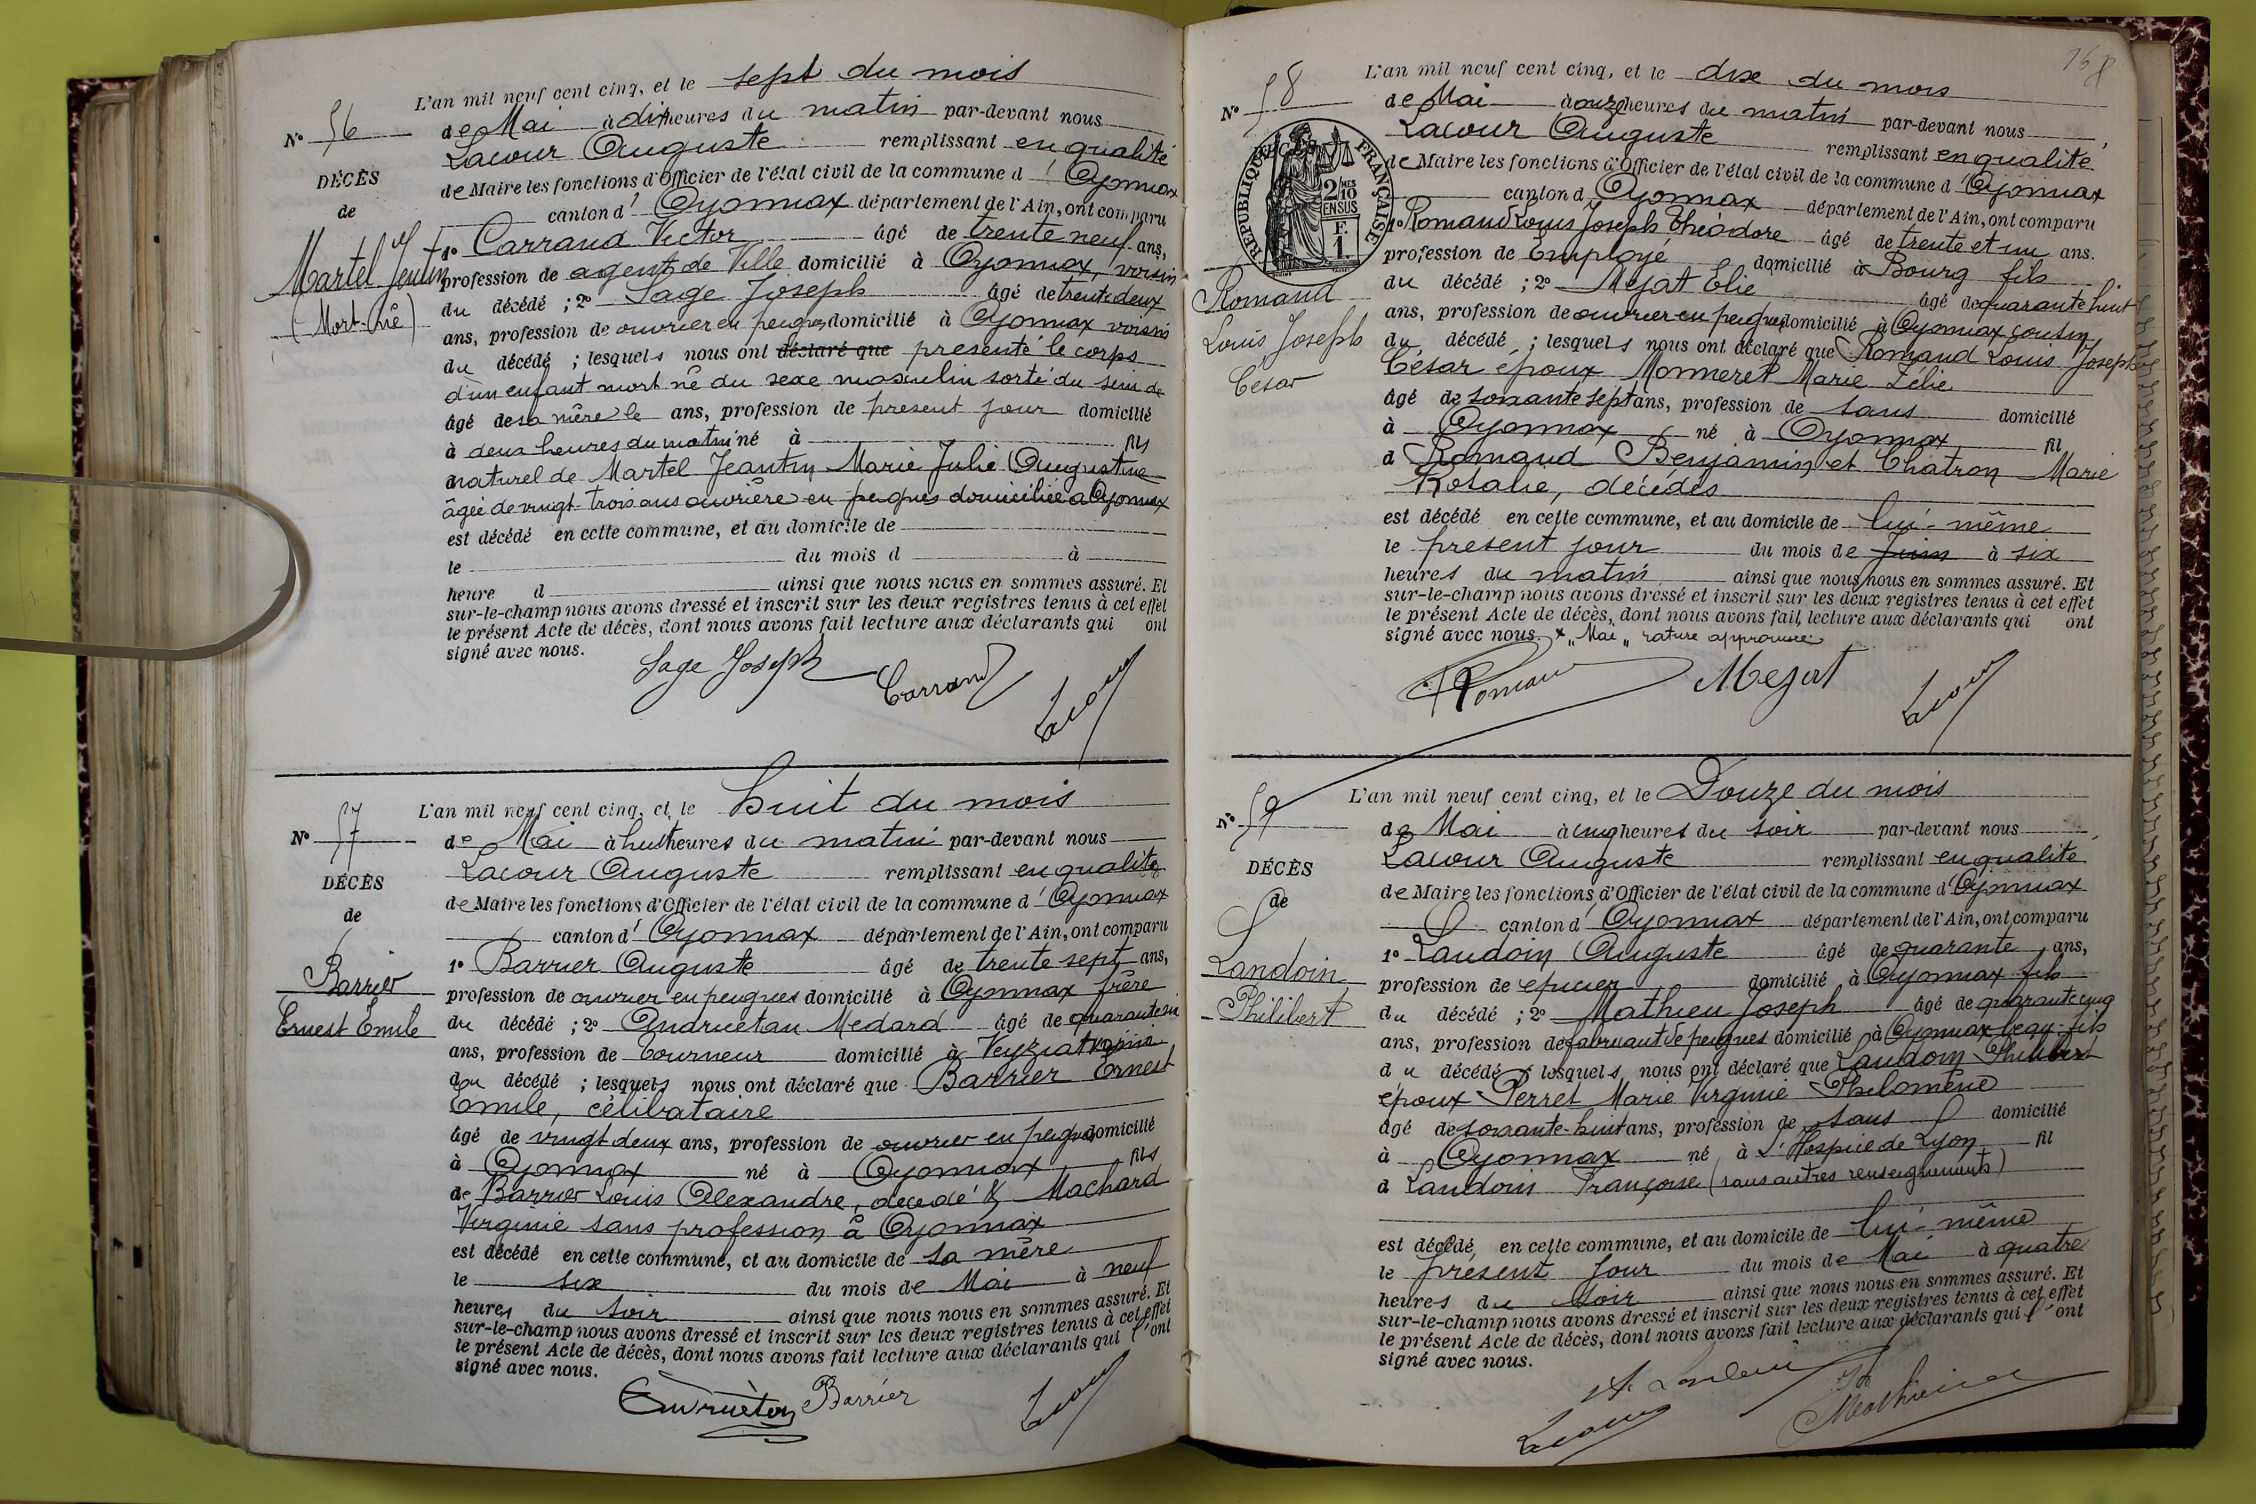 L'an mil neuf cent cinq, et le sept du mois
N° 56
de Mai à dix heures du matin par-devant nous
Lacour Auguste remplissant en qualité
DÉCÈS
de Maire les fonctions d'Officier de l'état civil de la commune d'Oyonnax
de
canton d'Oyonnax département de l'Ain, ont comparu
Martel Jeantin
(Mort-né)
1° Carraud Victor âgé de trente neuf ans,
profession de agent de Ville domicilié à Oyonnax, voisin
du décédé ; 2° Sage Joseph âgé de trente deux
ans, profession de ouvrier en peignes domicilié à Oyonnax voisin
du décédé ; lesquels nous ont déclaré que présenté le corps
d'un enfant mort né du sexe masculin sorti du sein de
âgé de sa mère le ans, profession de présent jour domicilié
à deux heures du matin né à fils
naturel de Martel Jeantin Marie Julie Augustine
âgée de vingt-trois ans ouvrière en peignes domiciliée à Oyonnax
est décédé en cette commune, et au domicile de
le du mois d à
heure d ainsi que nous nous en sommes assuré. Et
sur-le-champ nous avons dressé et inscrit sur les deux registres tenus à cet effet
le présent Acte de décès, dont nous avons fait lecture aux déclarants qui ont
signé avec nous.
Sage Joseph Carraud Lacour
L'an mil neuf cent cinq, et le huit du mois
N° 57
de Mai à huit heures du matin par-devant nous
Lacour Auguste remplissant en qualité
DÉCÈS
de Maire les fonctions d'Officier de l'état civil de la commune d'Oyonnax
de
canton d'Oyonnax département de l'Ain, ont comparu
Barrier
Ernest Emile
1° Barrier Auguste âgé de trente sept ans,
profession de ouvrier en peignes domicilié à Oyonnax frère
du décédé ; 2° Andruétan Médard âgé de quarante six
ans, profession de Tourneur domicilié à Veyziat voisin
du décédé ; lesquels nous ont déclaré que Barrier Ernest
Emile, célibataire
âgé de vingt deux ans, profession de ouvrier en peignes domicilié
à Oyonnax né à Oyonnax fils
de Barrier Louis Alexandre, décédé & Machard
Virginie sans profession à Oyonnax
est décédé en cette commune, et au domicile de sa mère
le six du mois de Mai à neuf
heures du soir ainsi que nous nous en sommes assuré. Et
sur-le-champ nous avons dressé et inscrit sur les deux registres tenus à cet effet
le présent Acte de décès, dont nous avons fait lecture aux déclarants qui l'ont
signé avec nous.
Andruétan Barrier Lacour
L'an mil neuf cent cinq, et le dix du mois
N° 58
de Mai à onze heures du matin par-devant nous
Lacour Auguste remplissant en qualité
RÉPUBLIQUE FRANÇAISE
2/10MES EN SUS
F. 1.
de Maire les fonctions d'Officier de l'état civil de la commune d'Oyonnax
canton d'Oyonnax département de l'Ain, ont comparu
Romand
Louis Joseph
César
1° Romand Louis Joseph Théodore âgé de trente et un ans.
profession de Employé domicilié à Bourg fils
du décédé ; 2° Mejat Elie âgé de quarante huit
ans, profession de ouvrier en peignes domicilié à Oyonnax cousin
du décédé ; lesquels nous ont déclaré que Romand Louis Joseph
César époux Monneret Marie Zélie
âgé de soixante sept ans, profession de sans domicilié
à Oyonnax né à Oyonnax fil
d Romand Benjamin et Chatron Marie
Rosalie, décédés
est décédé en cette commune, et au domicile de lui-même
le présent jour du mois de Juin à six
heures du matin ainsi que nous nous en sommes assuré. Et
sur-le-champ nous avons dressé et inscrit sur les deux registres tenus à cet effet
le présent Acte de décès, dont nous avons fait lecture aux déclarants qui ont
signé avec nous. x "Mai" rature approuvée.
Romand Mejat Lacour
L'an mil neuf cent cinq, et le Douze du mois
N° 59
de Mai à cinq heures du soir par-devant nous
Lacour Auguste remplissant en qualité
DÉCÈS
de Maire les fonctions d'Officier de l'état civil de la commune d'Oyonnax
de
canton d'Oyonnax département de l'Ain, ont comparu
Landoin
Philibert
1° Landoin Auguste âgé de quarante ans,
profession de épicier domicilié à Oyonnax fils
du décédé ; 2° Mathieu Joseph âgé de quarante cinq
ans, profession de fabricant de peignes domicilié à Oyonnax beau-fils
du décédé ; lesquels nous ont déclaré que Landoin Philibert
époux Perret Marie Virginie Philomène
âgé de soixante-huit ans, profession de sans domicilié
à Oyonnax né à L'Hospice de Lyon fil
d Landoin Françoise (sans autres renseignements)
est décédé en cette commune, et au domicile de lui-même
le présent jour du mois de Mai à quatre
heures du soir ainsi que nous nous en sommes assuré. Et
sur-le-champ nous avons dressé et inscrit sur les deux registres tenus à cet effet
le présent Acte de décès, dont nous avons fait lecture aux déclarants qui l'ont
signé avec nous.
A. Landoin Mathieu
Lacour